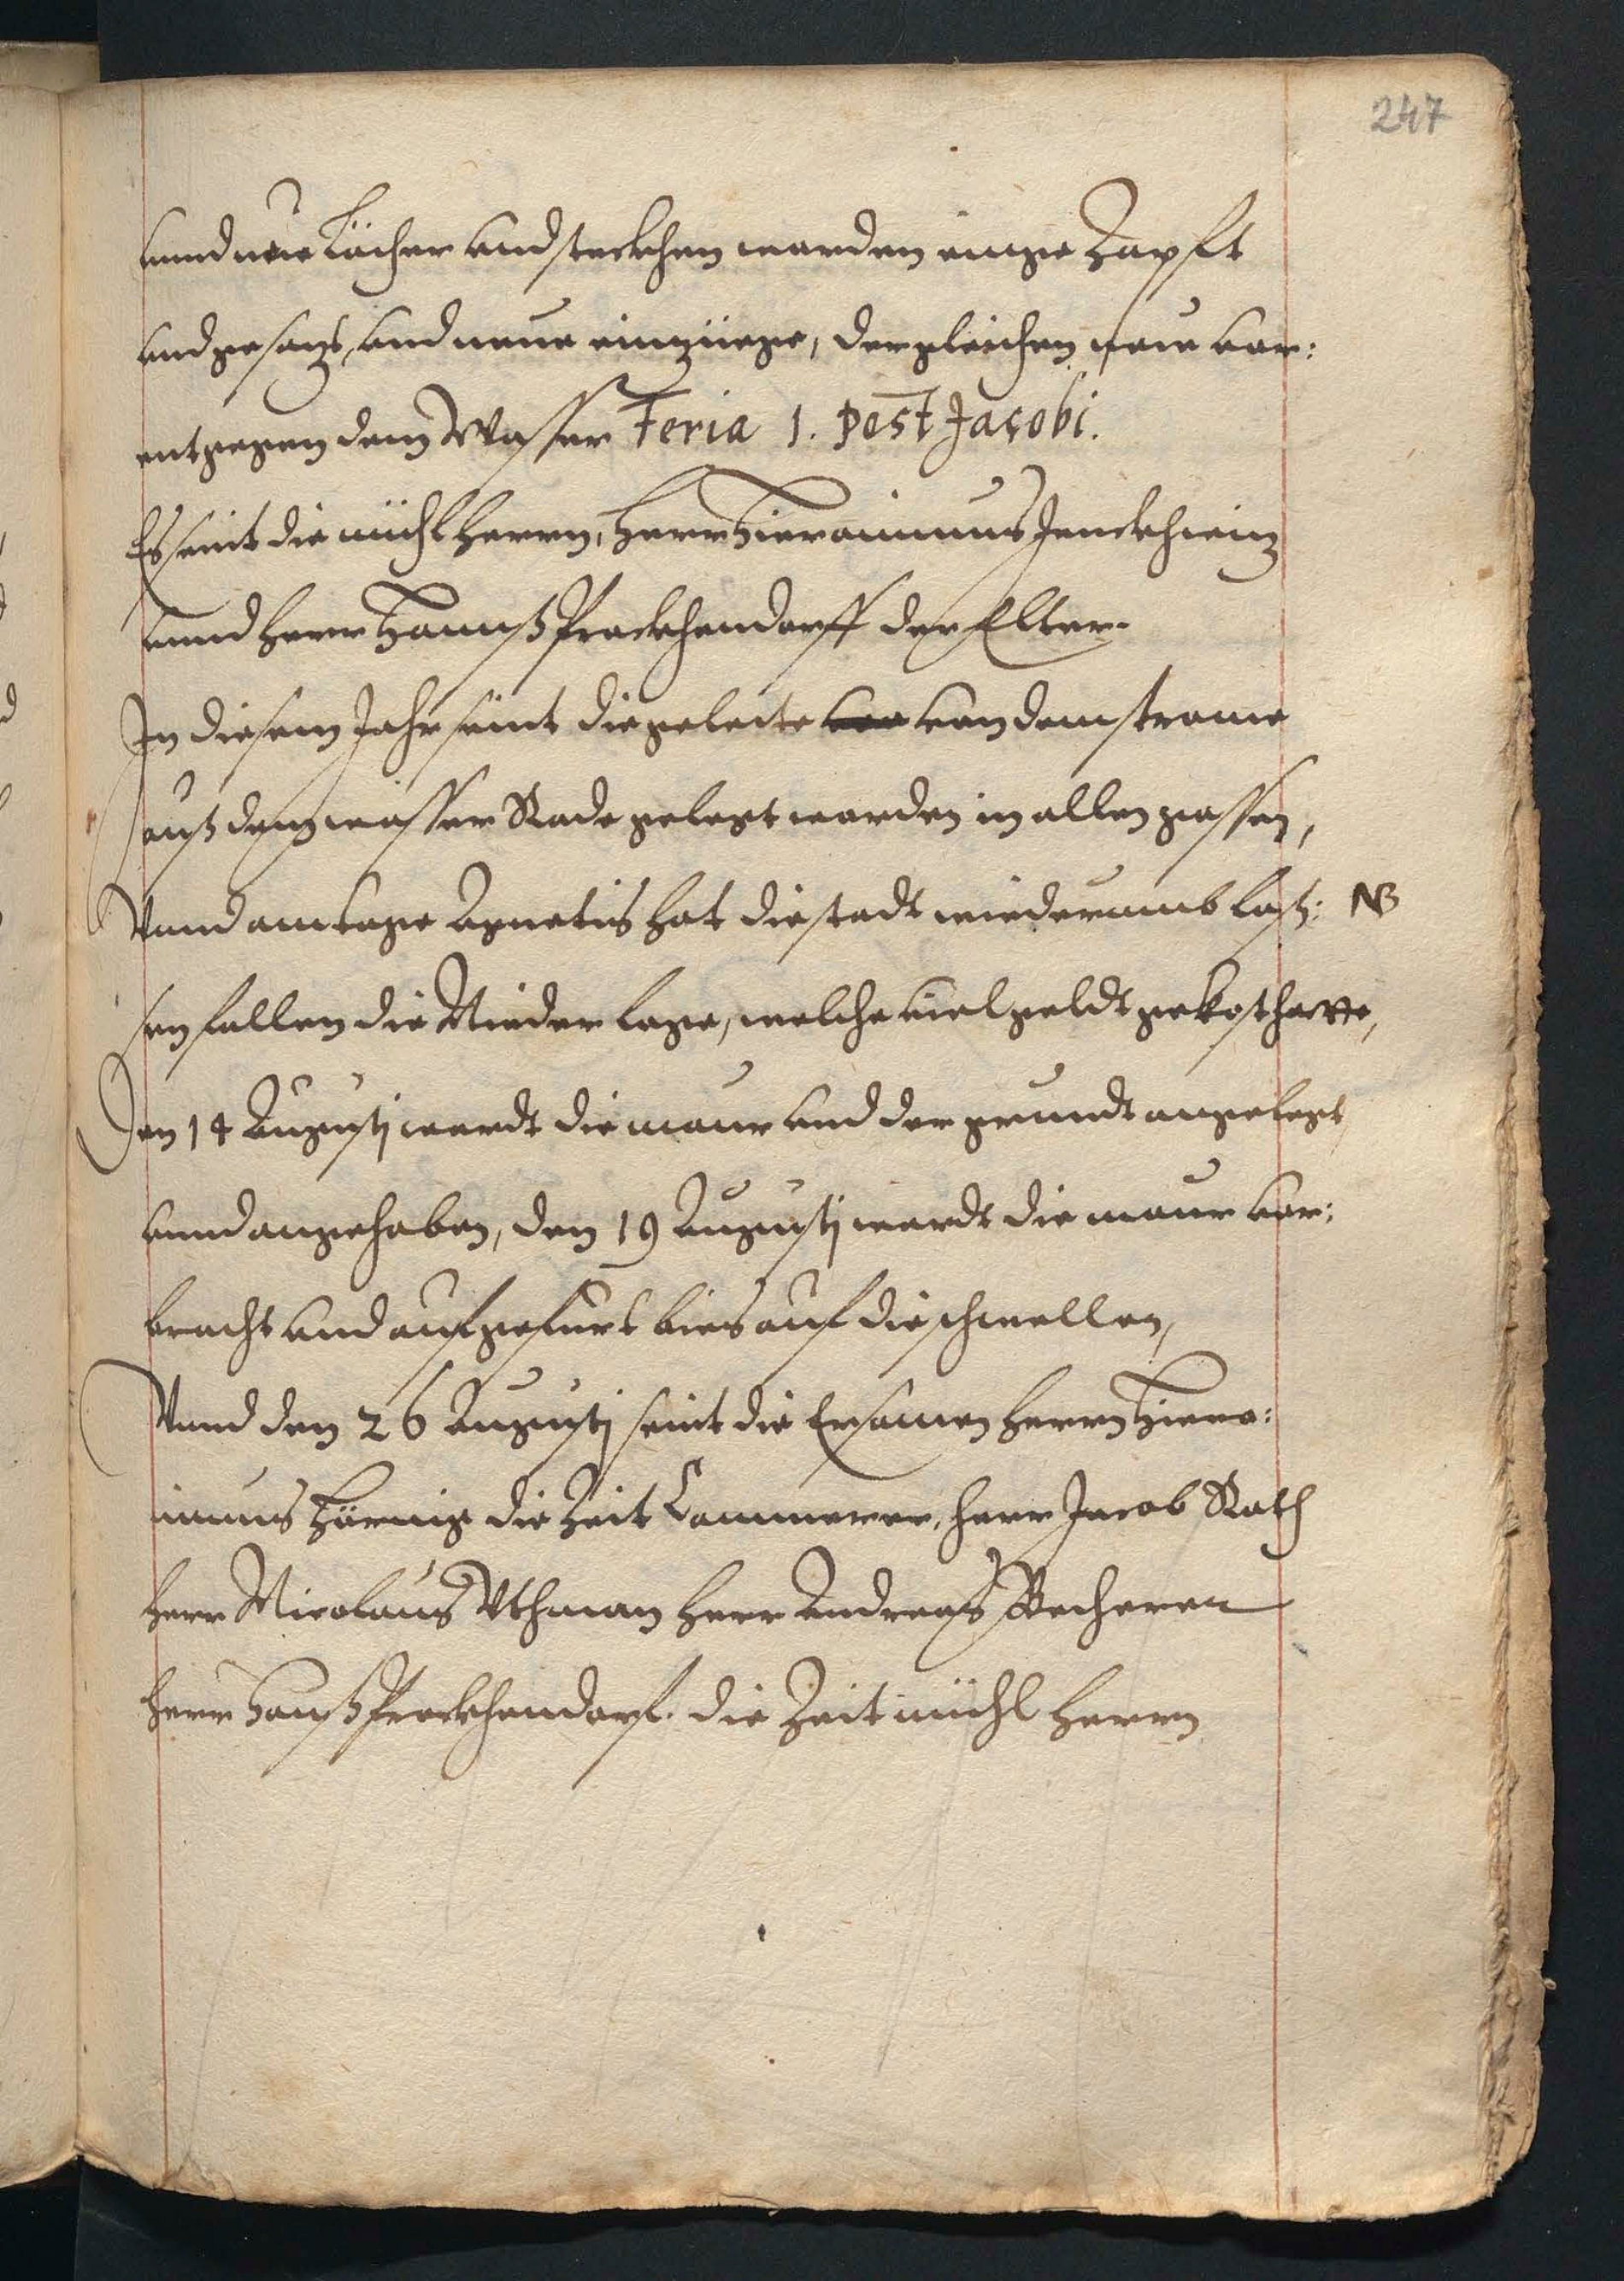 247
unnd neue Löcher und steckhen worden einge Zapft
und gesatz, und neue einzüege, dergleichen neue vor:
entgegen dem Wasser Feria 1. post Jacobi.
Es seint die mühl Herrn, Herr Hieronimus Jenckhwiz
unnd Herr Hannß Prockhendorff der Elter.
In diesem Jahr seint die geleite von dem strome
auß dem wasser Rade gelegt worden in allen gassen,
Vnnd am tage Agnetis hat die stadt wiederumb lasz: NB
sen fallen die Nieder lage, welche viel geldt gekost hatte,
Den 14 Augusti wardt die maur und der grundt angelegt
unnd angehaben, den 19 Augusti wardt die maur vor:
bracht und aufgefurt bies auf die schwellen,
Vnnd den 26 Augusti seint die Ersamen Herrn Hiero:
nimus Hörnig die Zeit Cammerer, Herr Jacob Rath
Herr Nicolaus Uthman Herr Andreas Becherer
Herr Hanß Prockhendorf. die Zeit mühl Herrn